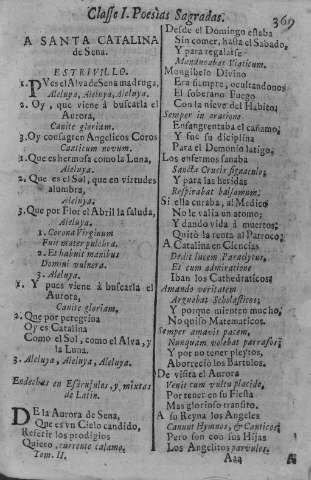 Classe I. Poesias Sagradas. 369
A SANTA CATALINA
de Sena.
ESTRIVILLO.
1. PVes el Alva de Sena madruga,
Aleluya, Aleluya, Aleluya.
2. Oy, que viene à buscarla el
Aurora,
Canite gloriam.
3. Oy consagren Angelicos Coros
Canticum novum.
1. Que es hermosa como la Luna,
Aleluya.
2. Que es el Sol, que en virtudes
alumbra,
Aleluya.
3. Que por Flor el Abril la saluda,
Aleluya.
1. Corona Virginum
Fuit mater pulchra.
2. Et habuit manibus
Domini vulnera.
3. Aleluya.
1. Y pues viene à buscarla el
Aurora,
Canite gloriam,
2. Que por peregrina
Oy es Catalina
Como el Sol, como el Alva, y
la Luna.
3. Aleluya, Aleluya, Aleluya.
Endechas en Esdrujulos, y mixtas
de Latin.
DE la Aurora de Sena,
Que es vn Cielo candido,
Referir los prodigios
Quiero, currente calamo.
Tom. II.
Desde el Domingo estaba
Sin comer, hasta el Sabado,
Y para regalarse
Manducabat Viaticum.
Mongibelo Divino
Era siempre, ocultandonos
El soberano Fuego
Con la nieve del Habito;
Semper in oratione
Ensangrentaba el cañamo;
Y su diciplina
Para el Demonio latigo,
Los enfermos sanaba
Sancta Crucis signaculo;
Y para las heridas
Respirabat balsamum;
Si ella curaba, al Medico
No le valia vn atomo;
Y dando vida à muertos,
Quitò la renta al Parroco;
A Catalina en Ciencias
Dedit lucem Paraclytus,
Et cum admiratione
Iban los Cathedraticos;
Amando veritatem
Arguebat Scholasticos;
Y porque mienten mucho,
No quiso Matematicos.
Semper amavit pacem,
Nunquam volebat parrafos;
Y por no tener pleytos,
Aborreciò los Bartulos.
De visita el Aurora
Venit cum vultu placido,
Por tener en su Fiesta
Mas glorioso transito.
A su Reyna los Angeles
Canunt Hymnos, & Cantica;
Pero son con sus Hijas
Los Angelitos parvulos.
Aaa A